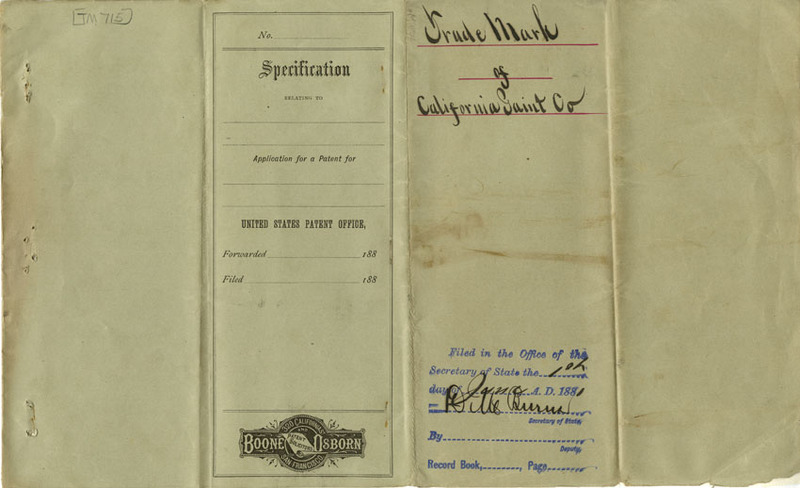 [TM 715]
No.
Specification
RELATING TO
Application for a Patent for
UNITED STATES PATENT OFFICE,
Forwarded 188
Filed 188
300 CALIFORNIA ST
AND
BOONE OSBORN
PATENT SOLICITORS
SAN FRANCISCO
Trade Mark
of
California Paint Co
Filed in the Office of the
Secretary of State the 1st
day of June A. D. 1881
D M Burns
Secretary of State,
By
Deputy,
Record Book, , Page